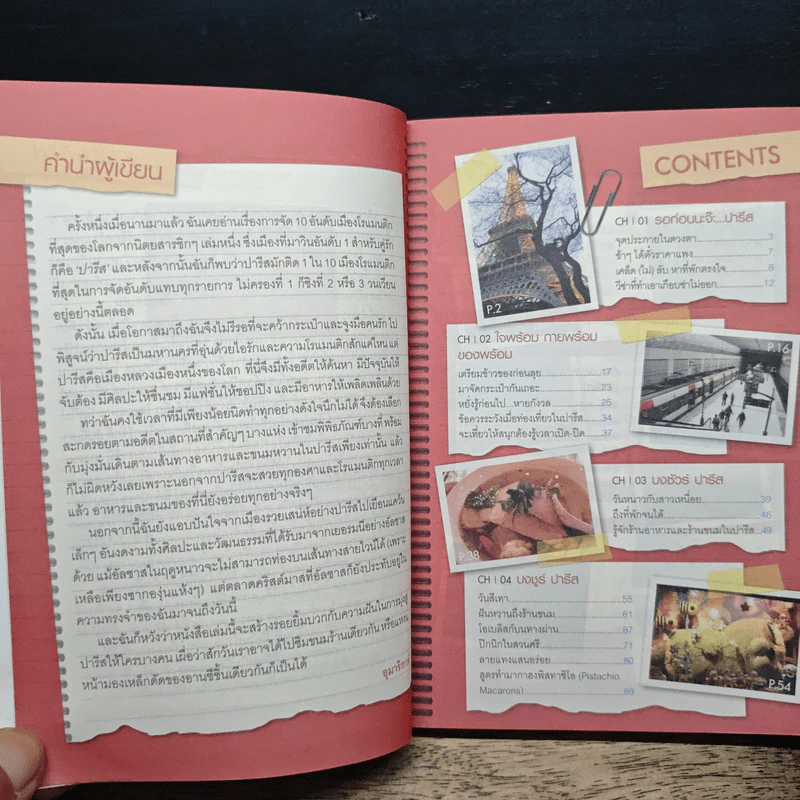 คำนำผู้เขียน
ครั้งหนึ่งเมื่อนานมาแล้ว ฉันเคยอ่านเรื่องการจัด 10 อันดับเมืองโรแมนติก
ที่สุดของโลกจากนิตยสารชิกๆ เล่มหนึ่ง ซึ่งเมืองที่มาวินอันดับ 1 สำหรับคู่รัก
ก็คือ 'ปารีส' และหลังจากนั้นฉันก็พบว่าปารีสมักติด 1 ใน 10 เมืองโรแมนติก
ที่สุดในการจัดอันดับแทบทุกรายการ ไม่ครองที่ 1 ก็ซิงที่ 2 หรือ 3 วนเวียน
อยู่อย่างนี้ตลอด
ดังนั้น เมื่อโอกาสมาถึงฉันจึงไม่รีรอที่จะคว้ากระเป๋าและจูงมือคนรักไป
พิสูจน์ว่าปารีสเป็นมหานครที่อุ่นด้วยไอรักและความโรแมนติกสักแค่ไหน แต่
ปารีสคือเมืองหลวงเมืองหนึ่งของโลก ที่นี่จึงมีทั้งอดีตให้ค้นหา มีปัจจุบันให้
จับต้อง มีศิลปะให้ชื่นชม มีแฟชั่นให้ชอปปิง และมีอาหารให้เพลิดเพลินด้วย
ทว่าฉันคงใช้เวลาที่มีเพียงน้อยนิดทำทุกอย่างดังใจนึกไม่ได้ จึงต้องเลือก
สะกดรอยตามอดีตในสถานที่สำคัญๆ บางแห่ง เข้าชมพิพิธภัณฑ์บางที่ พร้อม
กับมุ่งมั่นเดินตามเส้นทางอาหารและขนมหวานในปารีสเพียงเท่านั้น แล้ว
ก็ไม่ผิดหวังเลยเพราะนอกจากปารีสจะสวยทุกองศาและโรแมนติกทุกเวลา
แล้ว อาหารและขนมของที่นี่ยังอร่อยทุกอย่างจริงๆ
นอกจากนี้ฉันยังแอบปันใจจากเมืองรวยเสน่ห์อย่างปารีสไปเยือนแคว้น
เล็กๆ อันงดงามทั้งศิลปะและวัฒนธรรมที่ได้รับมาจากเยอรมนีอย่างอัลซาส
ด้วย แม้อัลซาสในฤดูหนาวจะไม่สามารถท่องบนเส้นทางสายไวน์ได้ (เพราะ
เหลือเพียงซากองุ่นแห้งๆ) แต่ตลาดคริสต์มาสที่อัลซาสก็ยังประทับอยู่ใน
ความทรงจำของฉันมาจนถึงวันนี้
และฉันก็หวังว่าหนังสือเล่มนี้จะสร้างรอยยิ้มบวกกับความฝันในการมุ่งสู่
ปารีสให้ใครบางคน เผื่อว่าสักวันเราอาจได้ไปชิมขนมร้านเดียวกัน หรือแหงน
หน้ามองเหล็กดัดของอานซีชิ้นเดียวกันก็เป็นได้
อุมาริการ์
CONTENTS
P.2
CH | 01 รอก่อนนะจ๊ะ...ปารีส
จุดประกายในดวงตา 3
ช้าๆ ได้ตั๋วราคาแพง 7
เคล็ด (ไม่) ลับ หาที่พักตรงใจ 8
วีซ่าที่ทำเอาเกือบซ่าไม่ออก 12
CH | 02 ใจพร้อม กายพร้อม
ของพร้อม
เตรียมข้าวของก่อนลุย 17
มาจัดกระเป๋ากันเถอะ 23
หยั่งรู้ก่อนไป...หายกังวล 25
ข้อควรระวังเมื่อท่องเที่ยวในปารีส 34
จะเที่ยวให้สนุกต้องรู้เวลาเปิด-ปิด 37
P.16
P.38
CH | 03 บงชัวร์ ปารีส
วันหนาวกับสาวเหนื่อย 39
ถึงที่พักจนได้ 46
รู้จักร้านอาหารและร้านขนมในปารีส 49
CH | 04 บงชูร์ ปารีส
วันสีเทา 55
ฝันหวานถึงร้านขนม 61
โอเบลิสก์บนทางผ่าน 67
ปิกนิกในสวนศรี 71
ลายแทงแสนอร่อย 80
สูตรทำมากาฮงพิสทาชิโอ (Pistachio
Macarons) 89
P.54